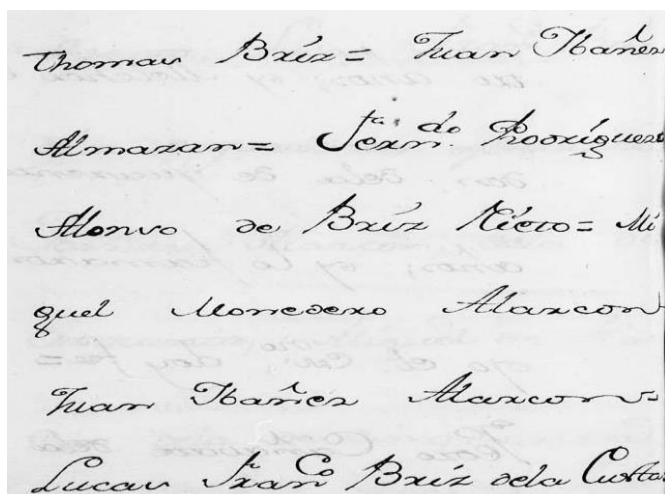 Thomas Bríz= Juan Ibañez
Almazan= Fern.do Rodríguez
Alonso de Bríz Nieto= Mi
guel Monedero Alarcon
Juan Ibañez Alarcon=
Lucas Fran.co Bríz dela Cuesta